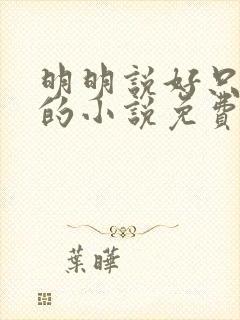 明明說好只
的小說免費
葉曄